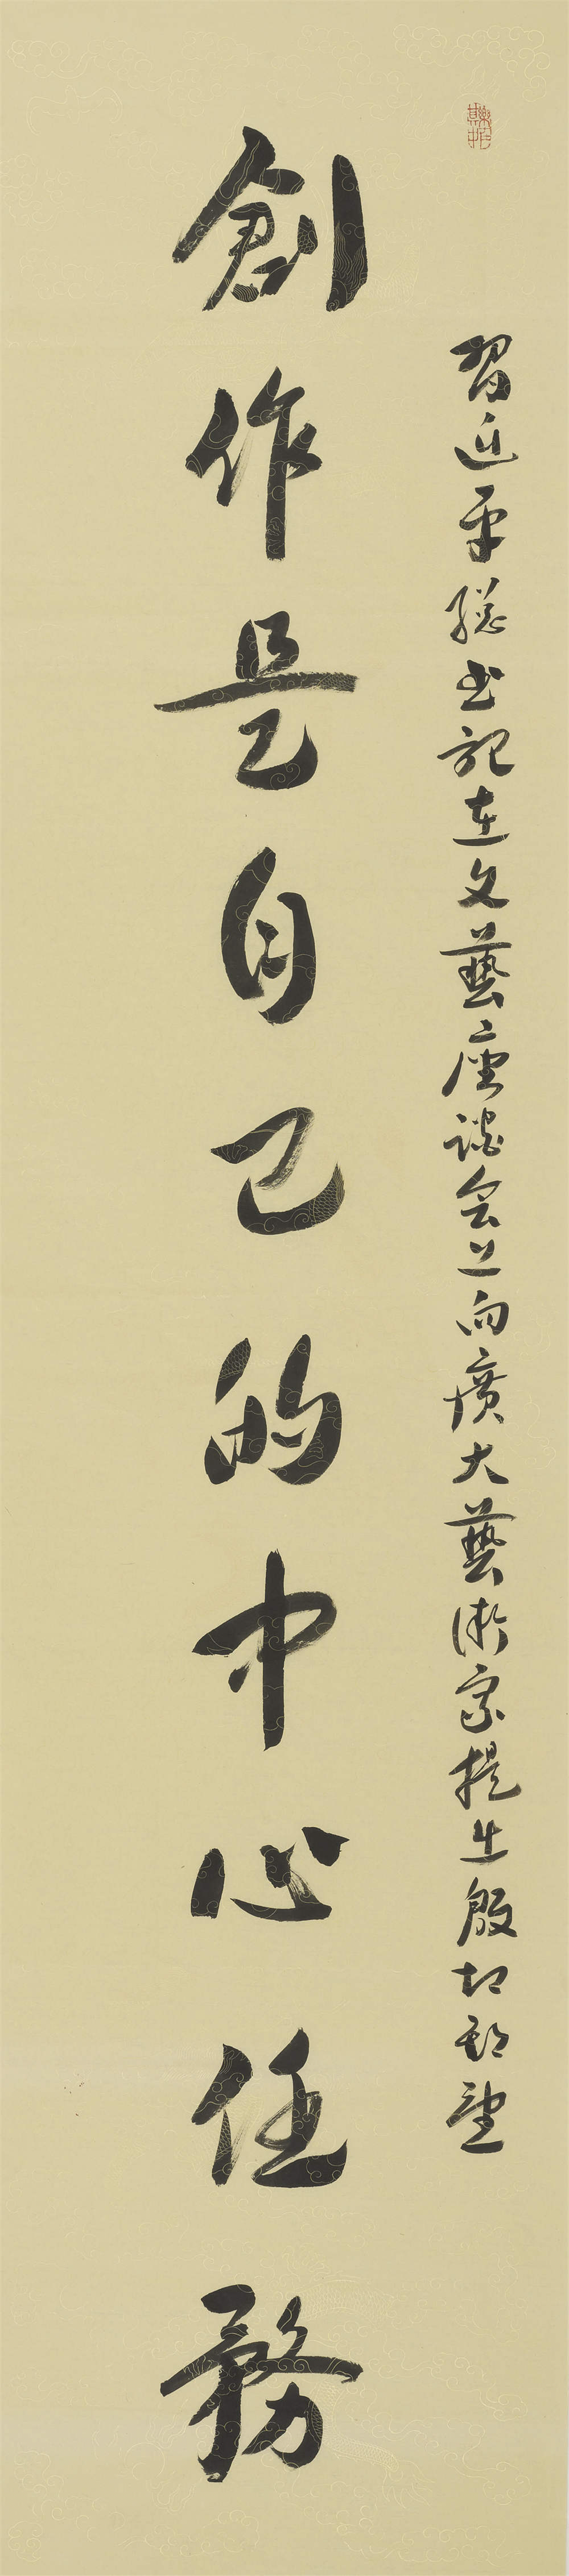 習近平總書記在文藝座談会上向廣大藝術家提出殷切期望
創作是自己的中心任務